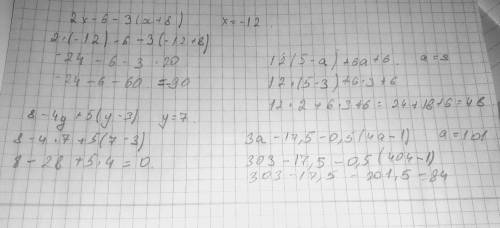 2x-6-3(x+8) x=-12
2·(-12)-6-3(-12+8)
-24-6-3·20
-24-6-60=-90
8-4y+5(y-3) y=7.
8-4·7+5(7-3)
8-28+5·4=0.
12(5-a)+6a+6. a=3
12·(5-3)+6·3+6
12·2+6·3+6=24+18+6=48
3a-17,5-0,5(4a-1) a=101
303-17,5-0,5(404-1)
303-17,5-201,5=84